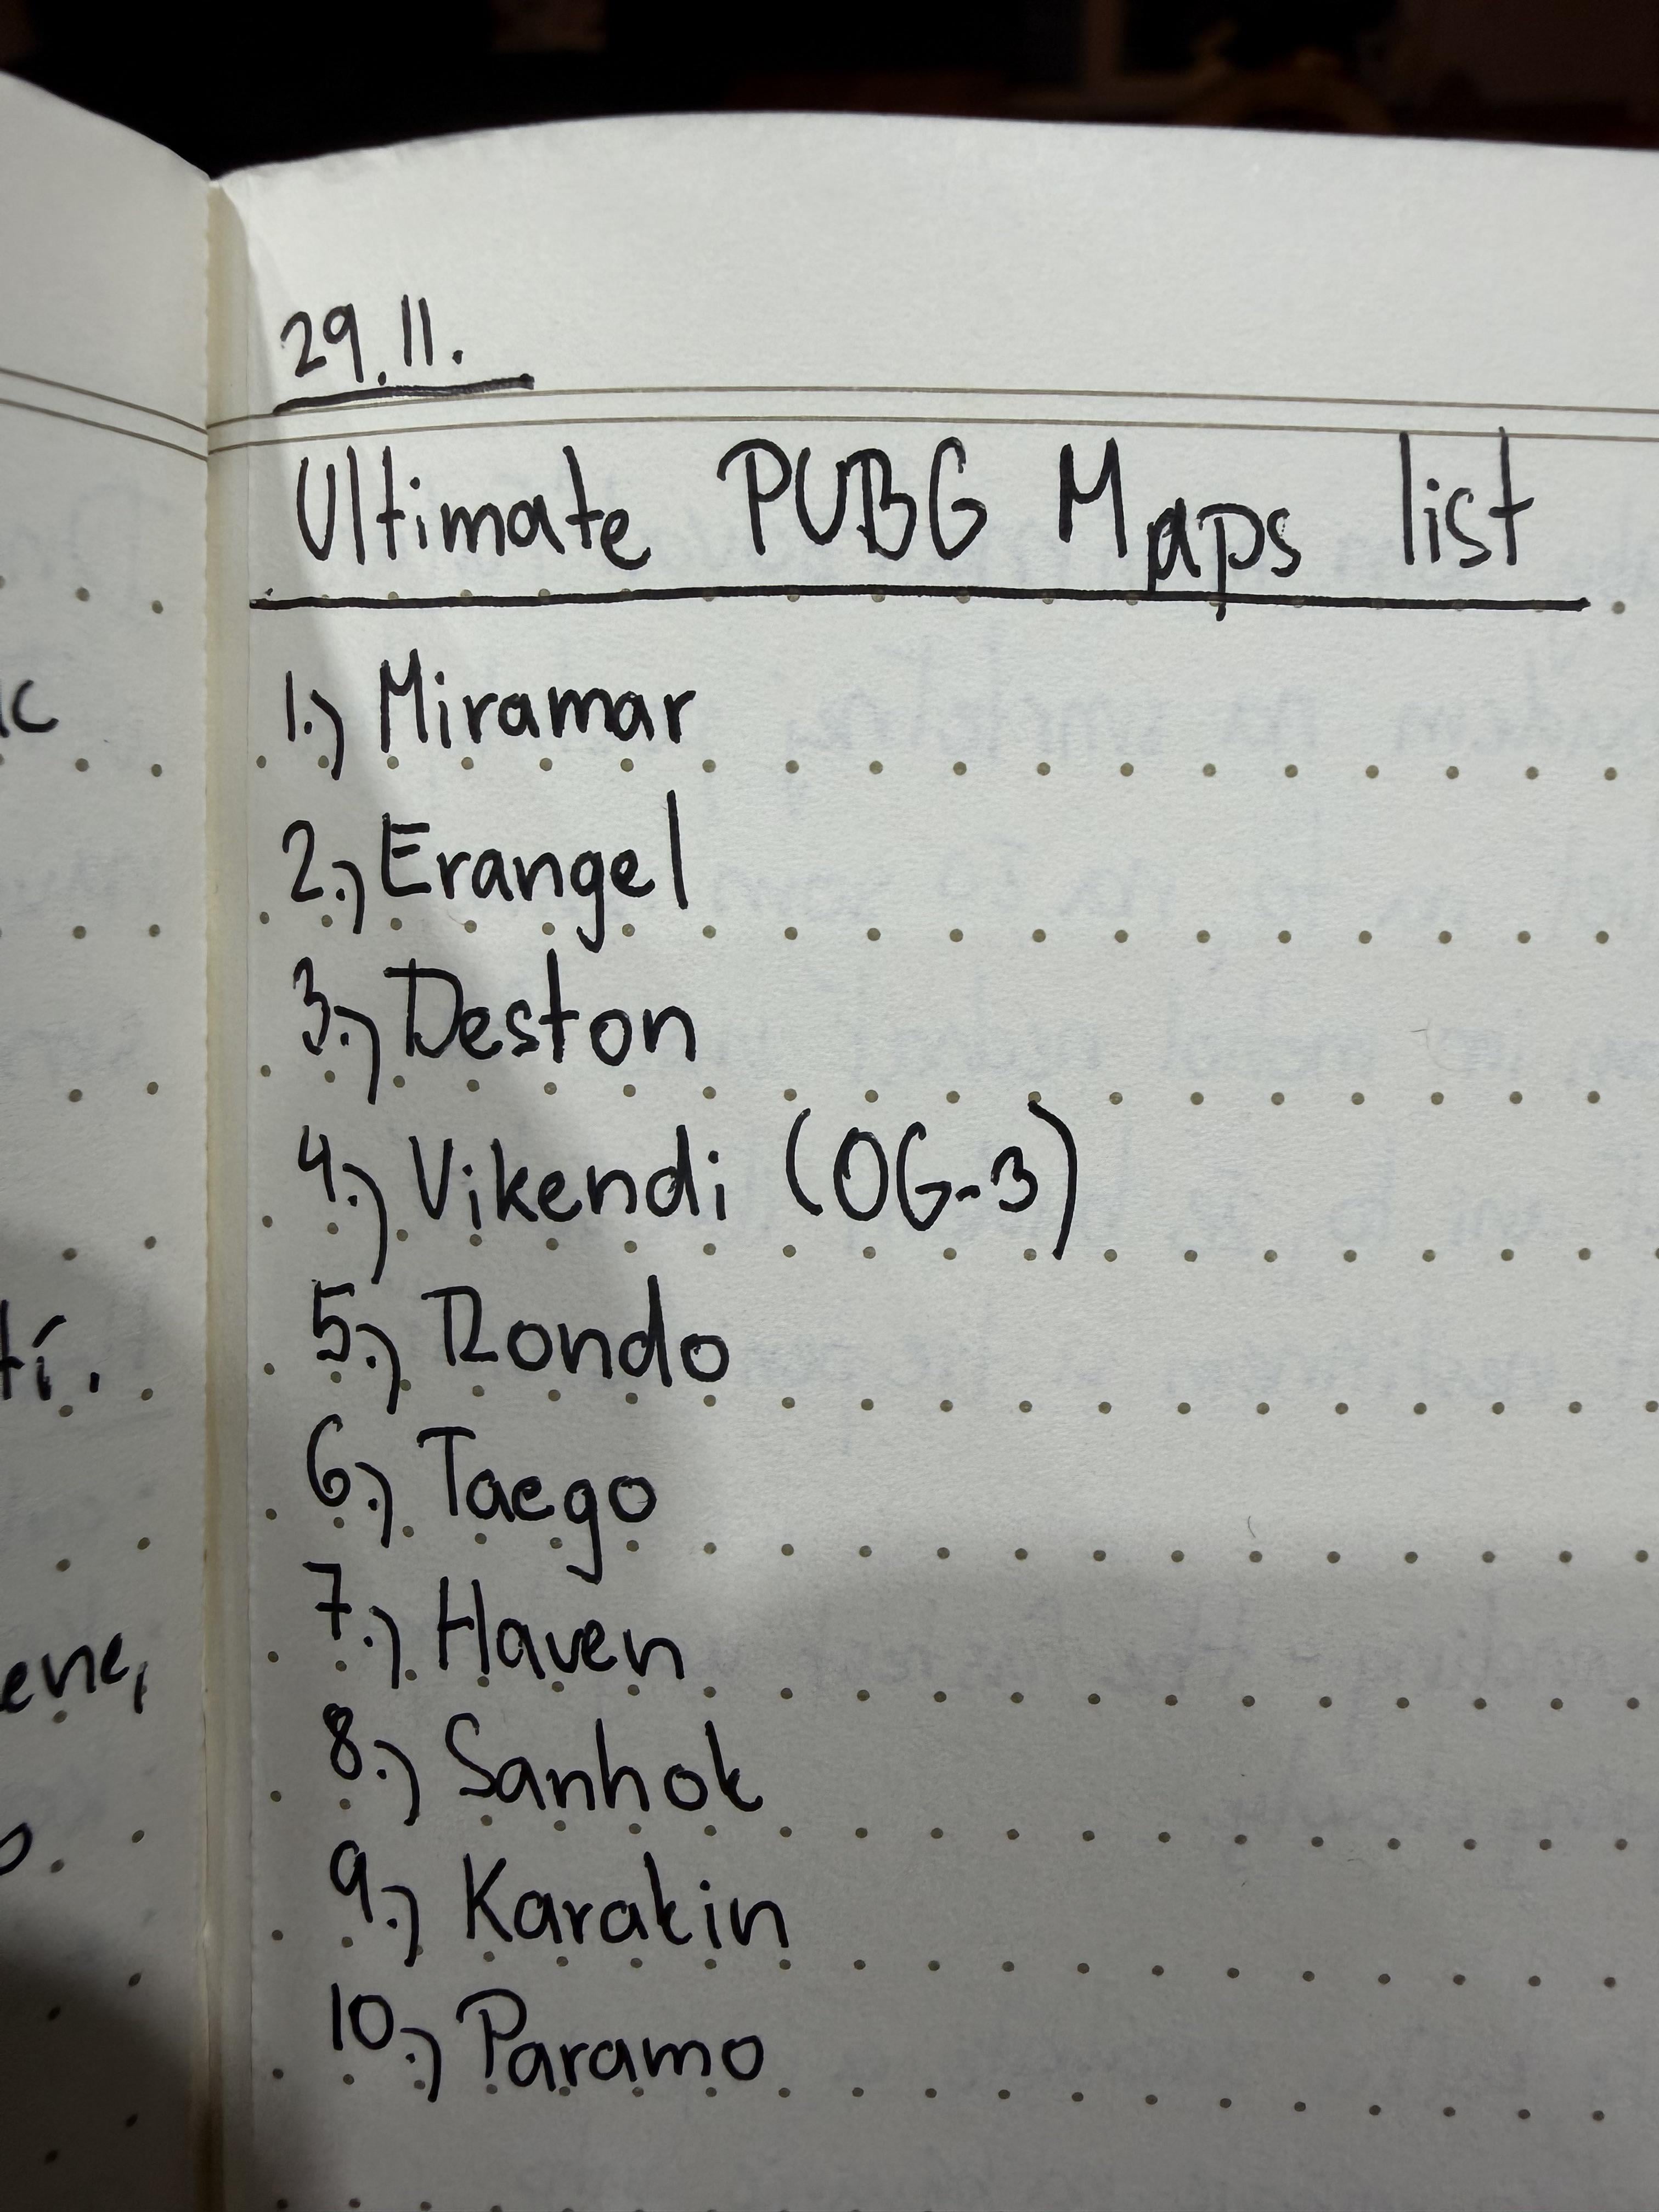 29.11.
Ultimate PUBG Maps list
1.) Miramar
2.) Erangel
3.) Deston
4.) Vikendi (OG-3)
5.) Rondo
6.) Taego
7.) Haven
8.) Sanhok
9.) Karakin
10.) Paramo